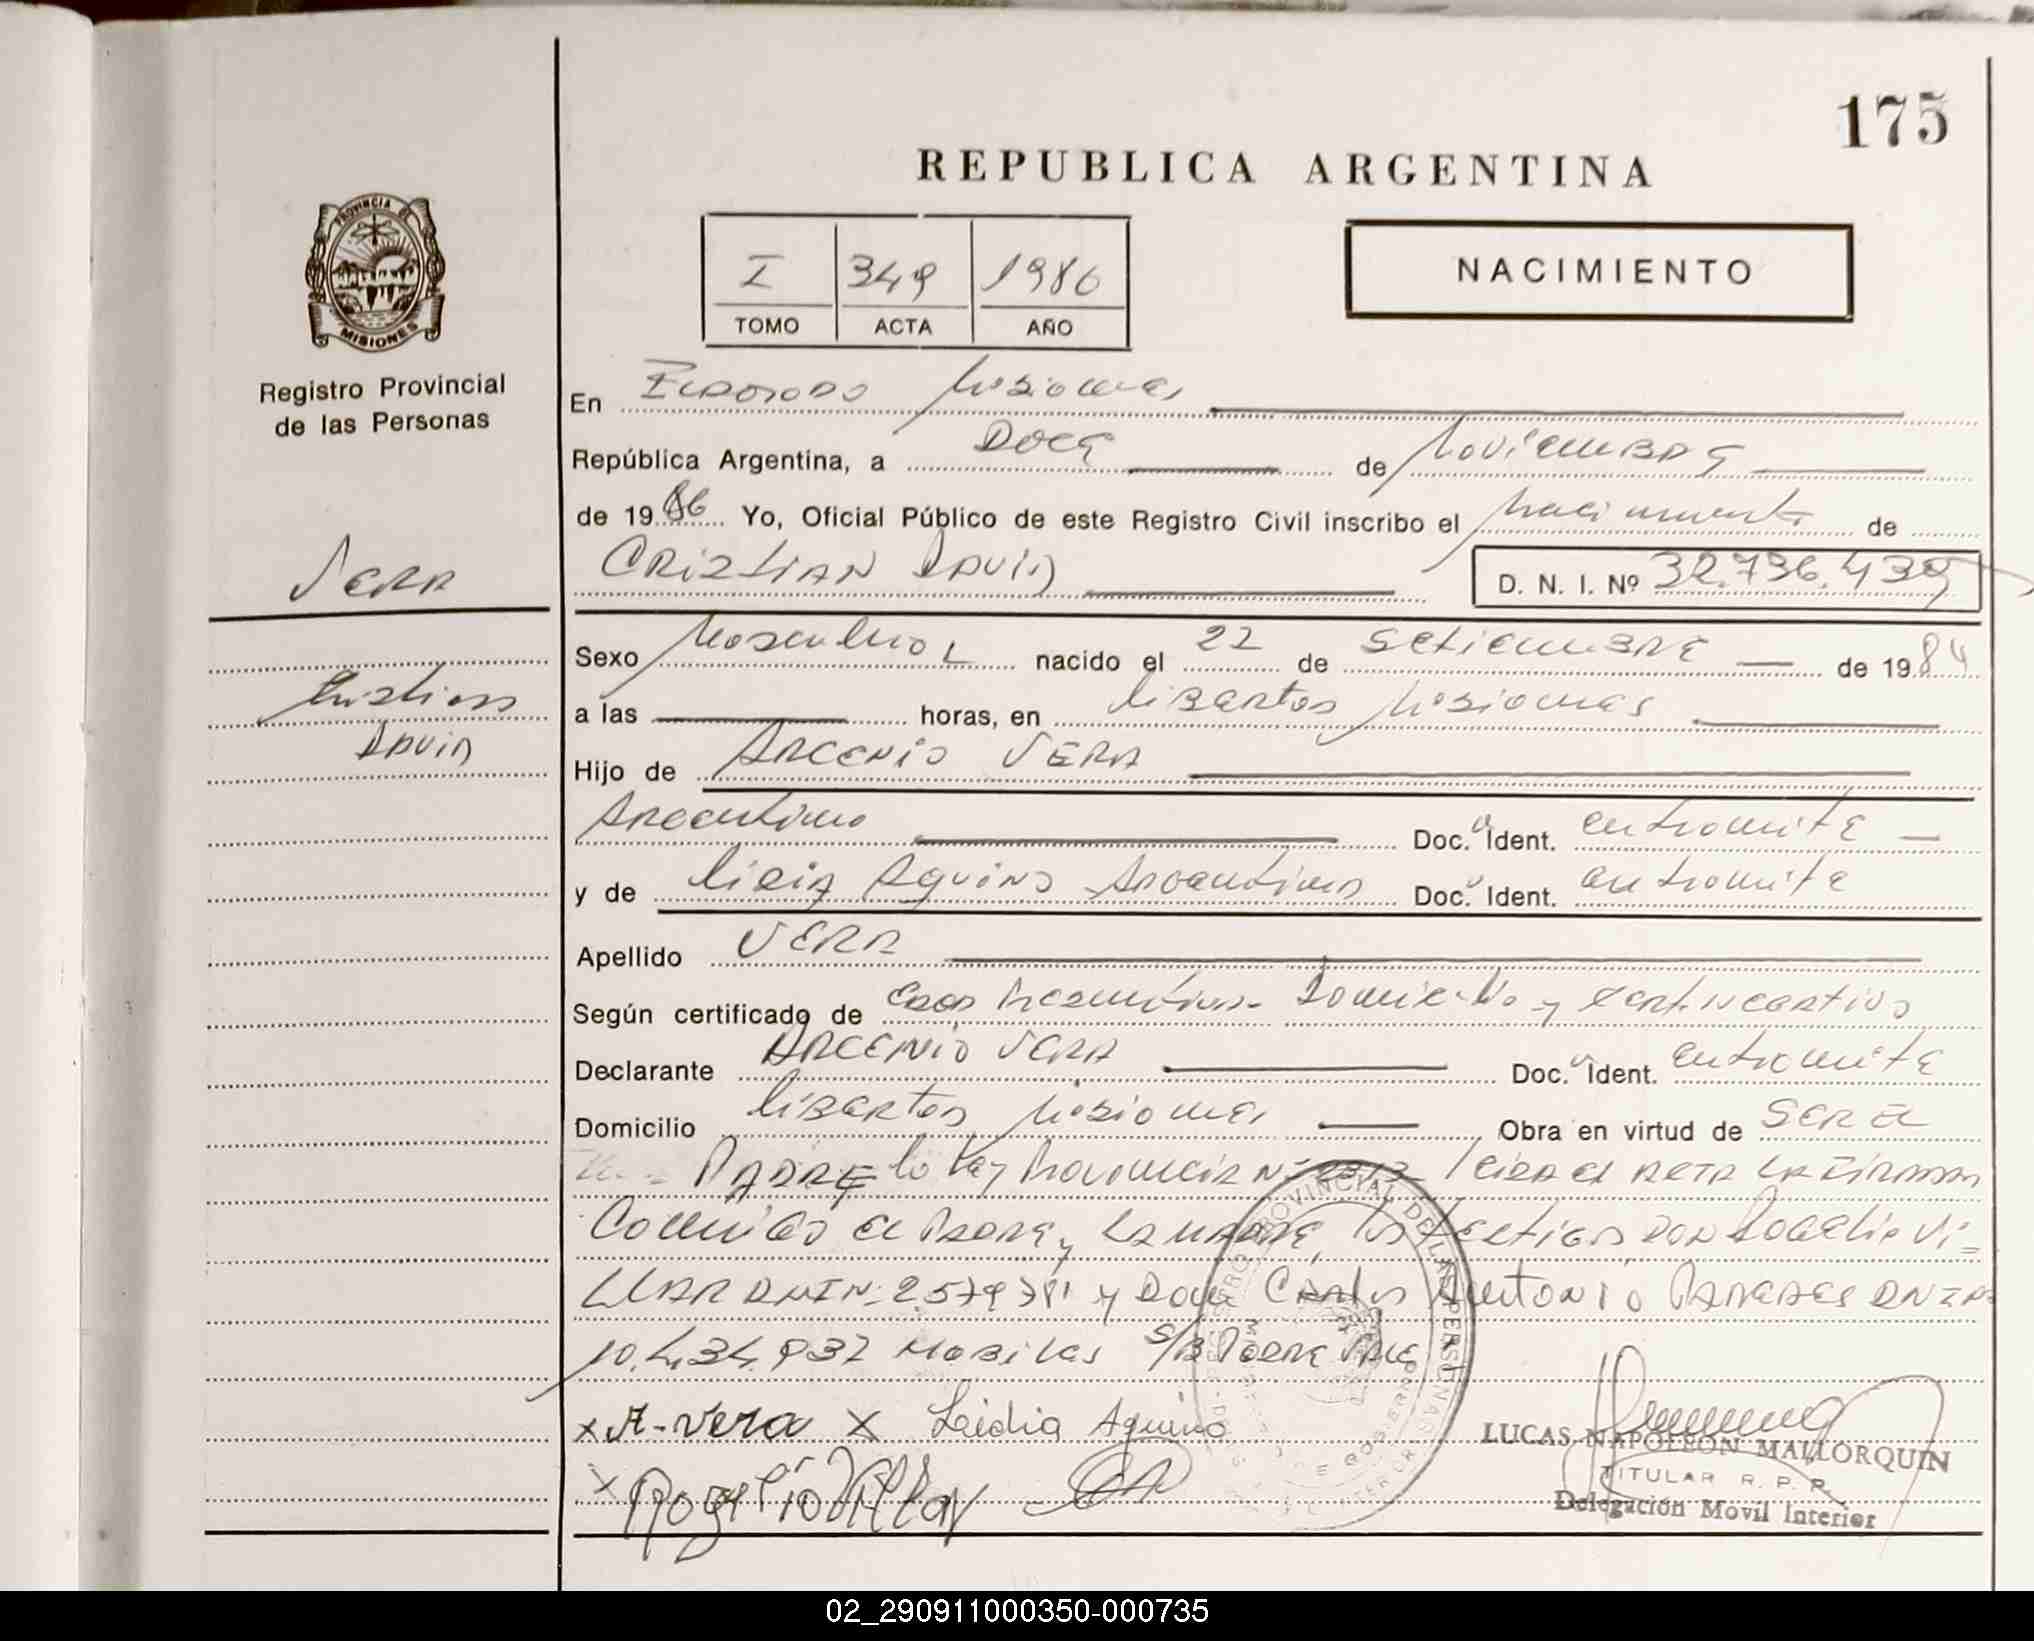 175
REPUBLICA ARGENTINA
I 349 1986
TOMO ACTA AÑO
NACIMIENTO
PROVINCIA DE
MISIONES
Registro Provincial
de las Personas
En Eldorado Misiones
República Argentina, a Doce de Noviembre
de 1986 Yo, Oficial Público de este Registro Civil inscribo el nacimiento de
CRISTIAN DAVID D. N. I. Nº 32.736.439
Vera
Cristian
David
Sexo Masculino nacido el 22 de Setiembre de 1984
a las horas, en Libertad Misiones
Hijo de Arcenio VERA
Argentino Doc. Ident. en tramite
y de Lidia Aquino Argentina Doc. Ident. en tramite
Apellido VERA
Según certificado de
Declarante ARCENIO VERA Doc. Ident. en tramite
Domicilio Libertad Misiones Obra en virtud de SER EL
PADRE Ley Provincial Nº Leida el acta la firman
Conmigo el Padre y la Madre, los testigos Don Rogelio Vi=
llar DNI Nº y Don Carlos Antonio Paredes DNI Nº
10.434.937
x A-Vera x Leidia Aquino
x Rogelio Villar
REGISTRO PROVINCIAL DE LAS PERSONAS
LUCAS NAPOLEON MALLORQUIN
TITULAR R. P. P.
Delegación Movil Interior
02_290911000350-000735